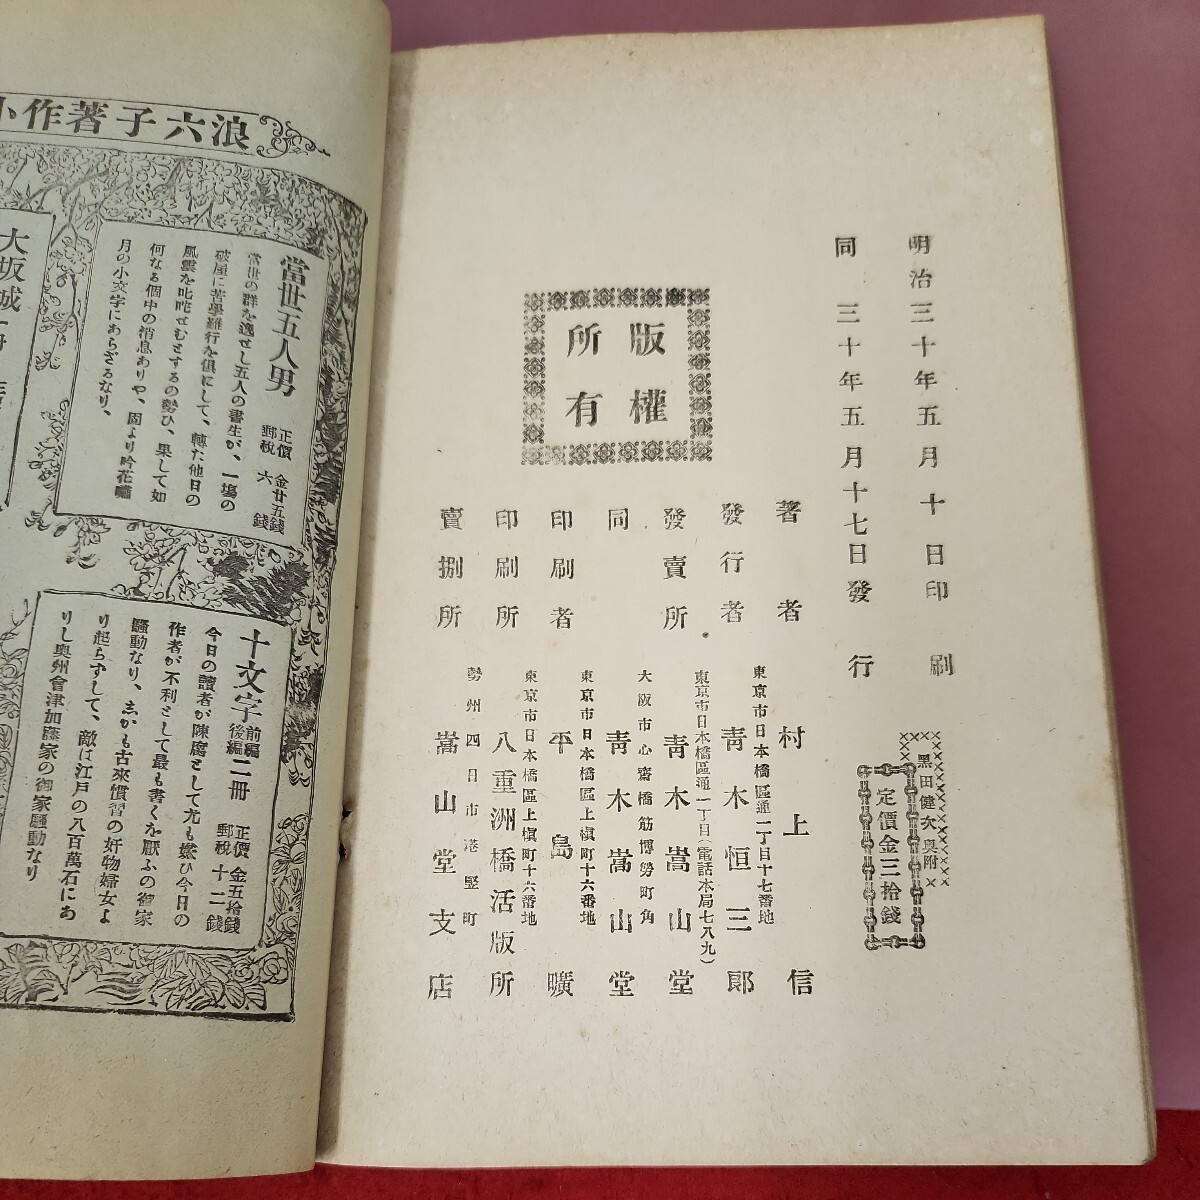 明治三十年五月十日印刷
同 三十年五月十七日發行
黑田健次與附
定價金三拾錢
版權
所有
著者 村上信
東京市日本橋區通一丁目十七番地
發行者 靑木恒三郞
東京市日本橋區通一丁目(電話本局七八九)
發賣所 靑木嵩山堂
大阪市心齋橋筋博勞町角
同 靑木嵩山堂
東京市日本橋區上槇町十六番地
印刷者 平島曠
東京市日本橋區上槇町十六番地
印刷所 八重洲橋活版所
勢州四日市港竪町
賣捌所 嵩山堂支店
浪六子著作小
當世五人男 正價金廿五錢 郵税六錢
當世の群を逸せし五人の書生が、一塲の
破屋に苦學難行を俱にして、轉た他日の
風雲を叱咤せむとするの勢ひ、果して如
何なる個中の消息ありや、固より吟花嘯
月の小文字にあらざるなり、
大坂城一册
十文字 前編後編 二冊 正價金五拾錢 郵税十二錢
今日の讀者が陳腐として尤も嫌ひ今日の
作者が不利として最も書くを厭ふの御家
騷動なり、しかも古來慣習の奸物婦女よ
り起らずして、敵は江戸の八百萬石にあ
りし奥州會津加藤家の御家騷動なり